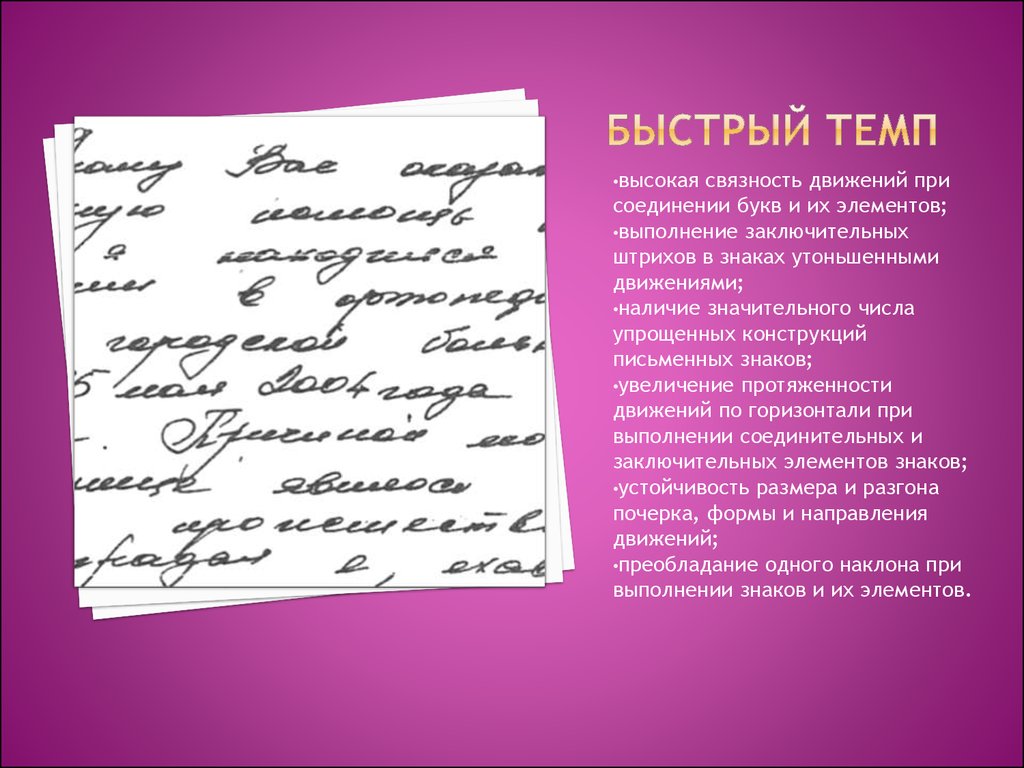 кому Вас оказан
ную помощь
я находился
ии в ортопеди
городской боль
5 мая 2004 года
. Причиной мо
нице явилось
происшеств
традал я, ехав
БЫСТРЫЙ ТЕМП
•высокая связность движений при
соединении букв и их элементов;
•выполнение заключительных
штрихов в знаках утоньшенными
движениями;
•наличие значительного числа
упрощенных конструкций
письменных знаков;
•увеличение протяженности
движений по горизонтали при
выполнении соединительных и
заключительных элементов знаков;
•устойчивость размера и разгона
почерка, формы и направления
движений;
•преобладание одного наклона при
выполнении знаков и их элементов.